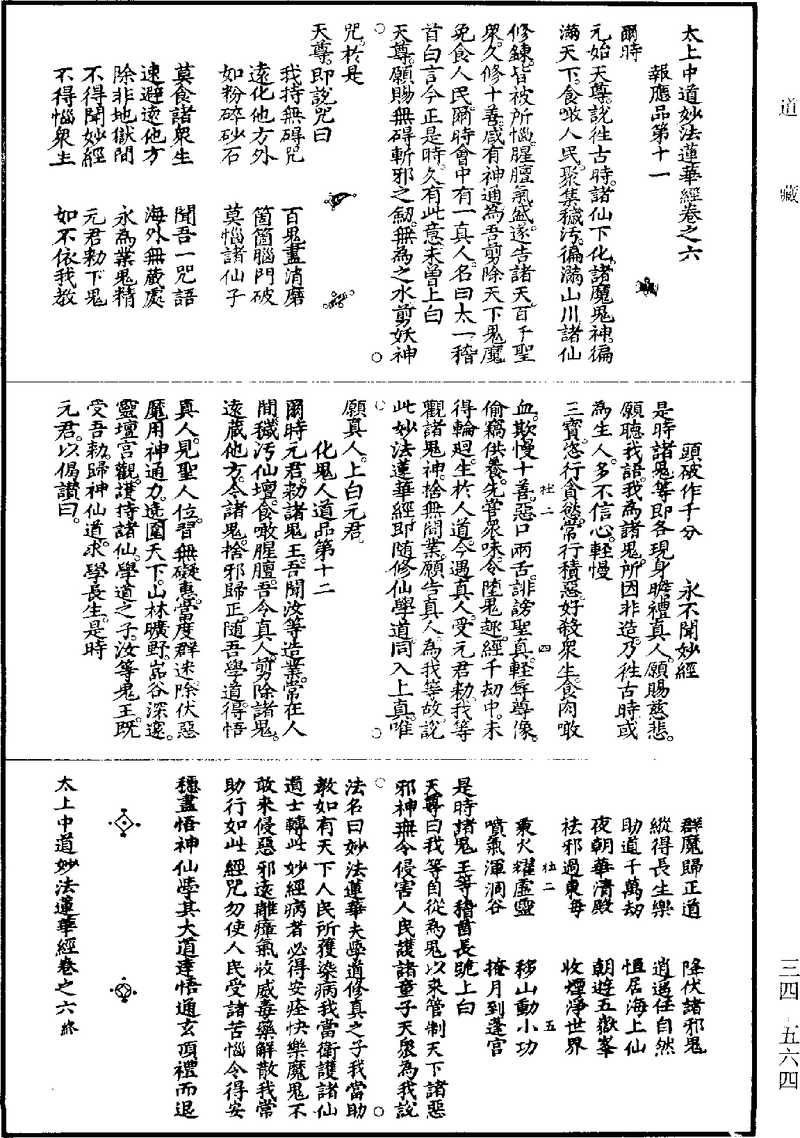 道藏
太上中道妙法蓮華經卷之六
報應品第十一
爾時
元始天尊。說徃古時。諸仙下化。諸魔鬼神。徧
滿天下。食噉人民。聚集穢汚。徧滿山川。諸仙
修鍊。皆被所惱。腥膻氣盛。遂告諸天。百千聖
衆。久修十善。咸有神通。為吾剪除。天下鬼魔
免食人民。爾時會中。有一真人。名曰太一。稽
首白言。今正是時。久有此意。未曾上白
天尊。願賜無碍斬邪之劒。無為之水。剪妖神
咒。於是
天尊。即說咒曰
我持無碍咒　百鬼盡消磨
遠化他方外　箇箇腦門破
如粉碎砂石　莫惱諸仙子
莫食諸衆生　聞吾一咒語
速避遠他方　海外無藏處
除非地獄間　永為業鬼精
不得聞妙經　元君勑下鬼
不得惱衆生　如不依我教
頭破作千分　永不聞妙經
是時諸鬼等。即各現身。瞻禮真人。願賜慈悲。
願聽我語。我為諸鬼。所因非造。乃徃古時。或
為生人。多不信心。輕慢
三寶。恣行貪慾。常行積惡。好殺衆生。食肉噉
血。欺慢十善。惡口兩舌。誹謗聖真。輕辱尊像。
偷竊供養。先嘗衆味。令墮鬼趣。經千劫中。未
得輪廻。生於人道。今遇真人。受元君勑。我等
觀諸鬼神。捨無間業。願告真人。為我等故。說
此妙法蓮華經。即随修仙學道。同入上真。唯
願真人。上白元君。
化鬼人道品第十二
爾時元君。勑諸鬼王。吾聞汝等造業。常在人
間。穢汚仙壇。食噉腥膻。吾今真人。剪除諸鬼。
遠藏他方。令諸鬼。捨邪歸正。随吾學道。得悟
真人。見聖人位。習無礙惠。當度群迷。除伏惡
魔。用神通力。遶圍天下。山林曠野。嵓谷深邃。
靈壇宫觀。護持諸仙。學道之子。汝等鬼王。既
受吾勑。歸神仙道。求學長生。是時
元君。以偈讚曰。
群魔歸正道　降伏諸邪鬼
縱得長生樂　逍遥任自然
助道千萬劫　恒居海上仙
夜朝華清殿　朝遊五嶽峯
袪邪過東海　收煙淨世界
乘火耀虛靈　移山動小功
噴氣渾澗谷　掩月到蓬宫
是時諸鬼王等。稽首長跪上白
天尊曰我等自從為鬼以來管制天下諸惡
邪神無令侵害人民護諸童子天衆為我說
法名曰妙法蓮華夫學道修真之子我當助
教如有天下人民所獲染病我當衛護諸仙
道士轉此妙經病者必得安痊快樂魔鬼不
敢來侵惡邪遠離瘴氣收威毒藥解散我常
助行如此經咒勿使人民受諸苦惱令得安
穩盡悟神仙學其大道達悟通玄頂禮而退
太上中道妙法蓮華經卷之六終
杜二
四
杜二
五
三四　五六四